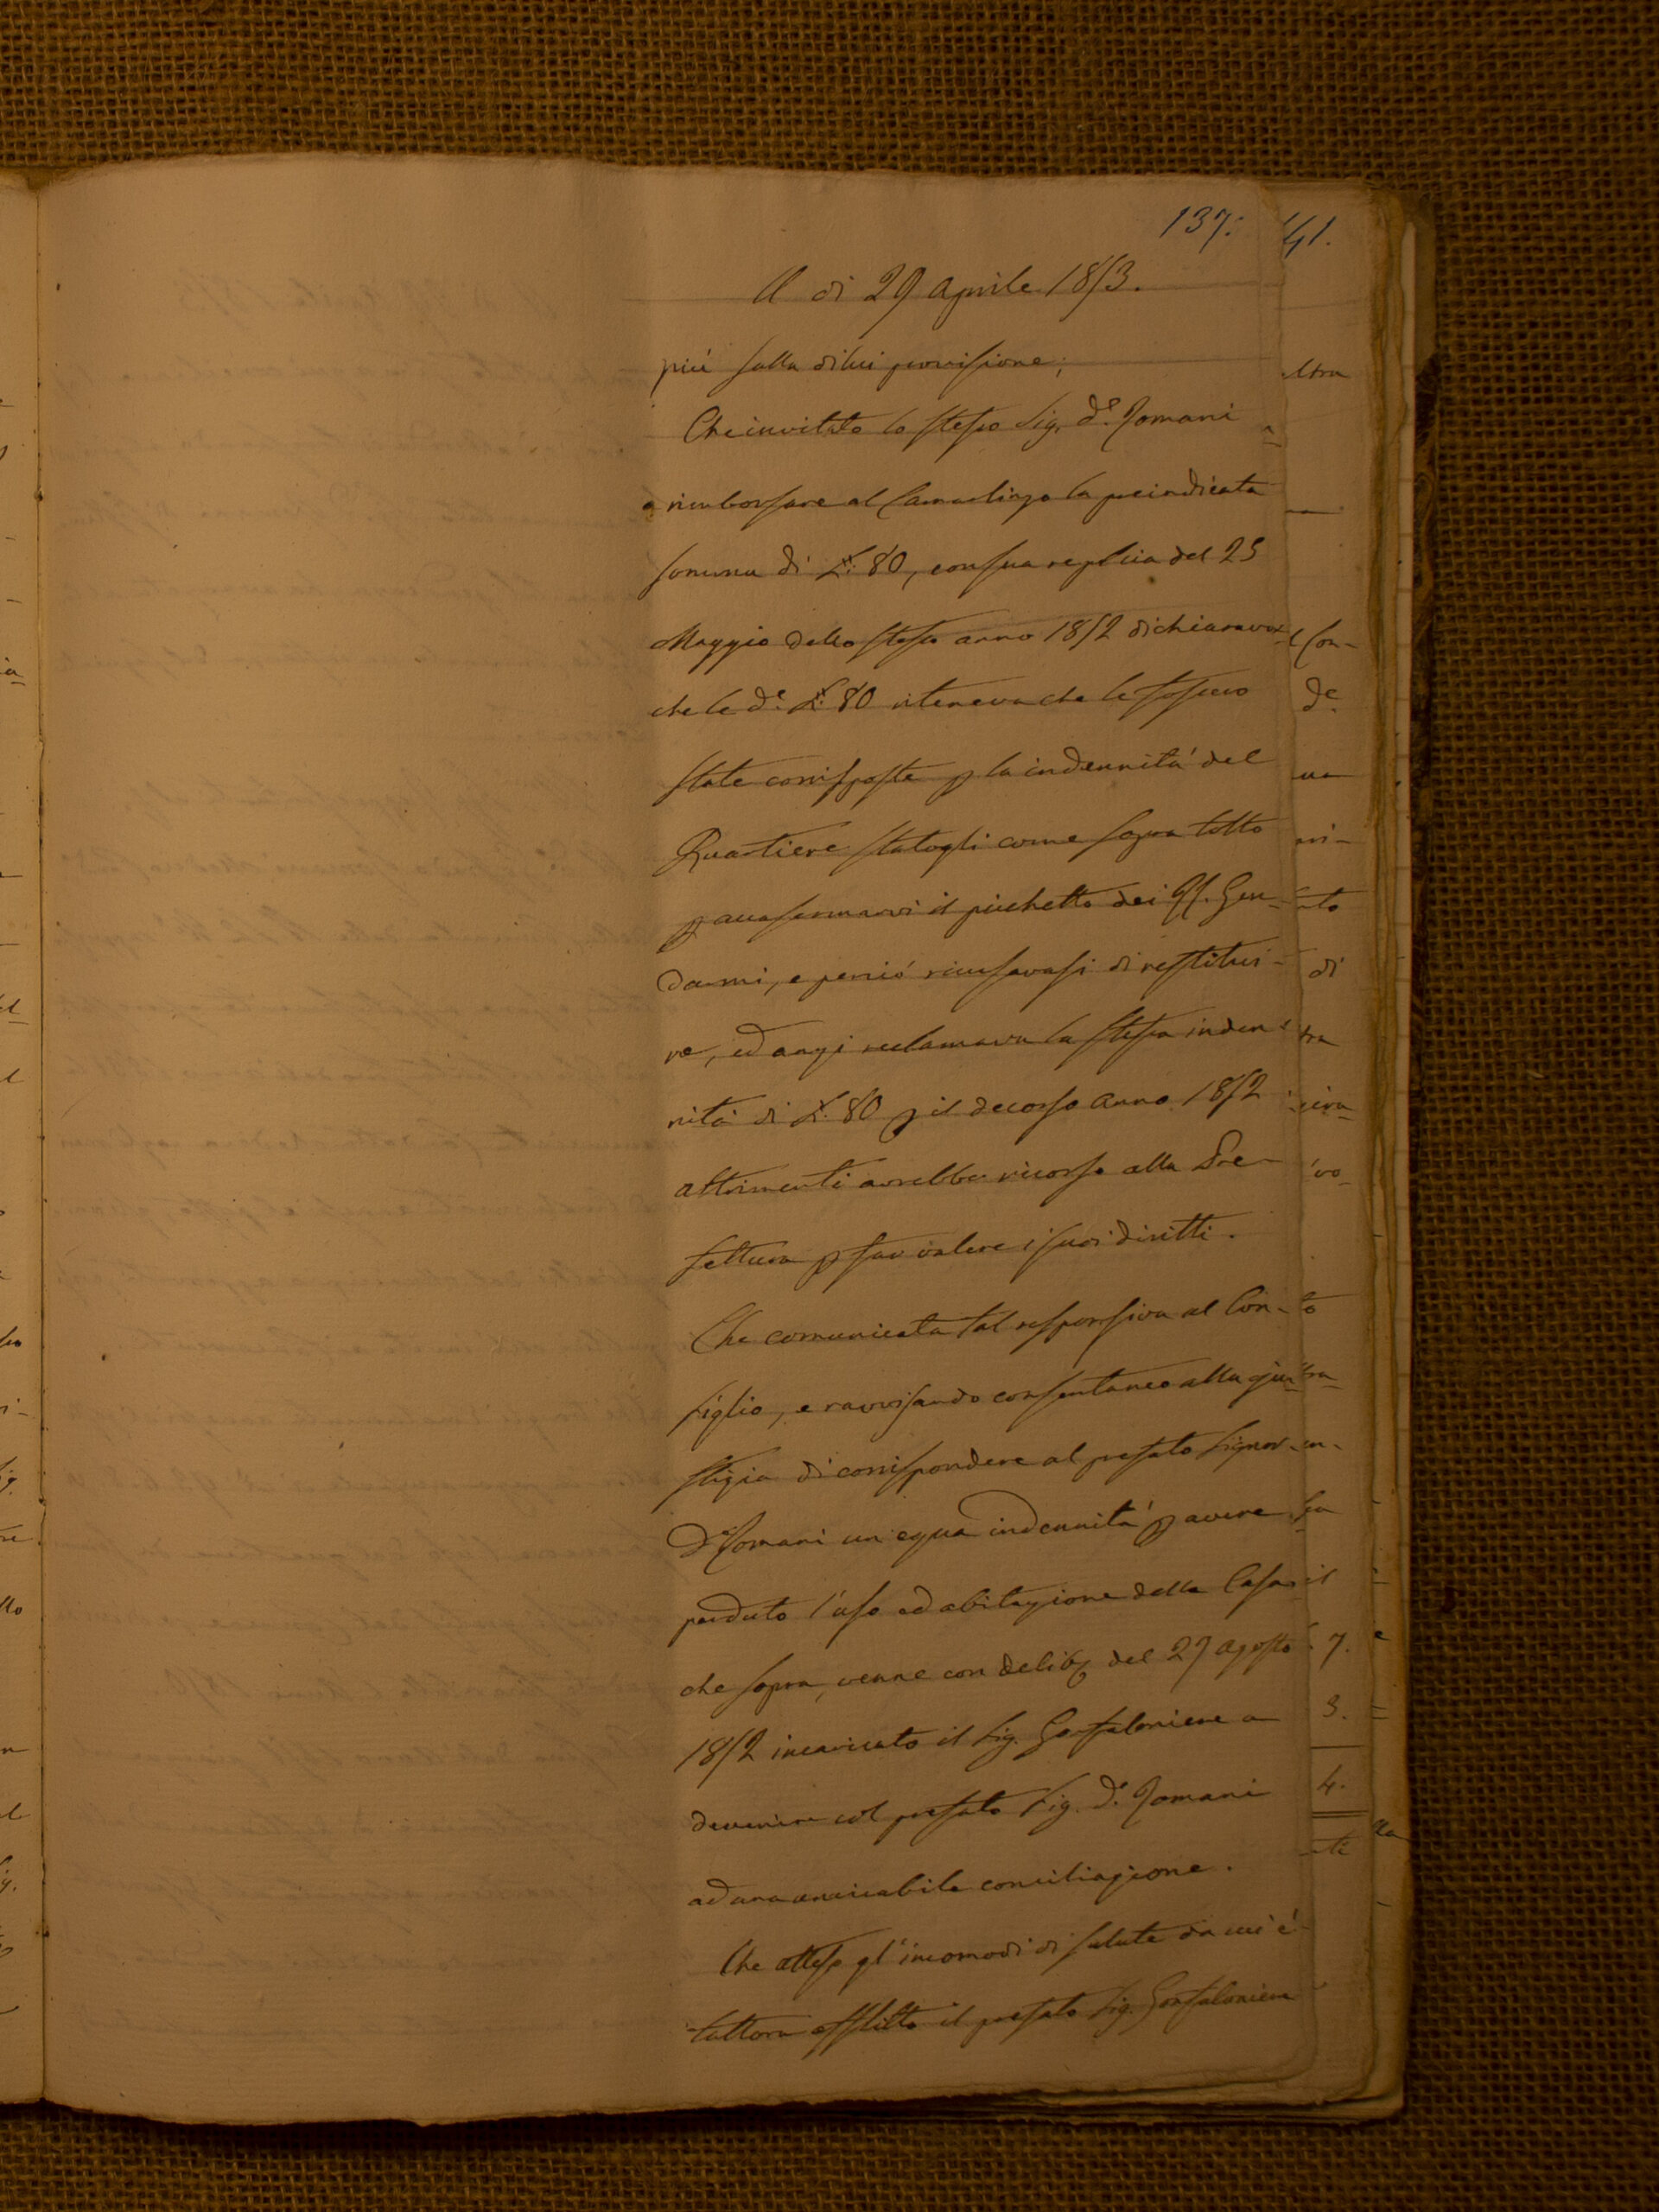 137:
A dì 29 Aprile 1853.
più sulla di lui provvisione;
Che invitato lo stesso Sig. D.e Romani
a rimborsare al Camarlingo la preindicata
somma di L: 80, con sua replica del 25
Maggio dello stesso anno 1852 dichiarava
che le d.e L: 80 riteneva che le fossero
state corrisposte p la indennità del
Quartiere statogli come sopra tolto
p accasermarvi il picchetto dei II. Gen-
darmi, e perciò ricusavasi di restitui-
re, ed anzi reclamava la stessa inden-
nità di L: 80 p il decorso anno 1852
altrimenti avrebbe ricorso alla Pre-
fettura p far valere i suoi diritti.
Che comunicata tal responsiva al Con-
siglio, e ravvisando consentaneo alla giu-
stizia di corrispondere al prefato Signor
D.e Romani un equa indennità p avere
perduto l'uso ed abitazione della Casa
che sopra, venne con delib del 27 Agosto
1852 incaricato il Sig. Gonfaloniere a
devenire col prefato Sig. D.e Romani
ad una amicabile conciliazione.
Che atteso gl'incomodi di salute da cui è
tuttora afflitto il prefato Sig. Gonfaloniere
41.
ltra
de
di
7.
3.
4.